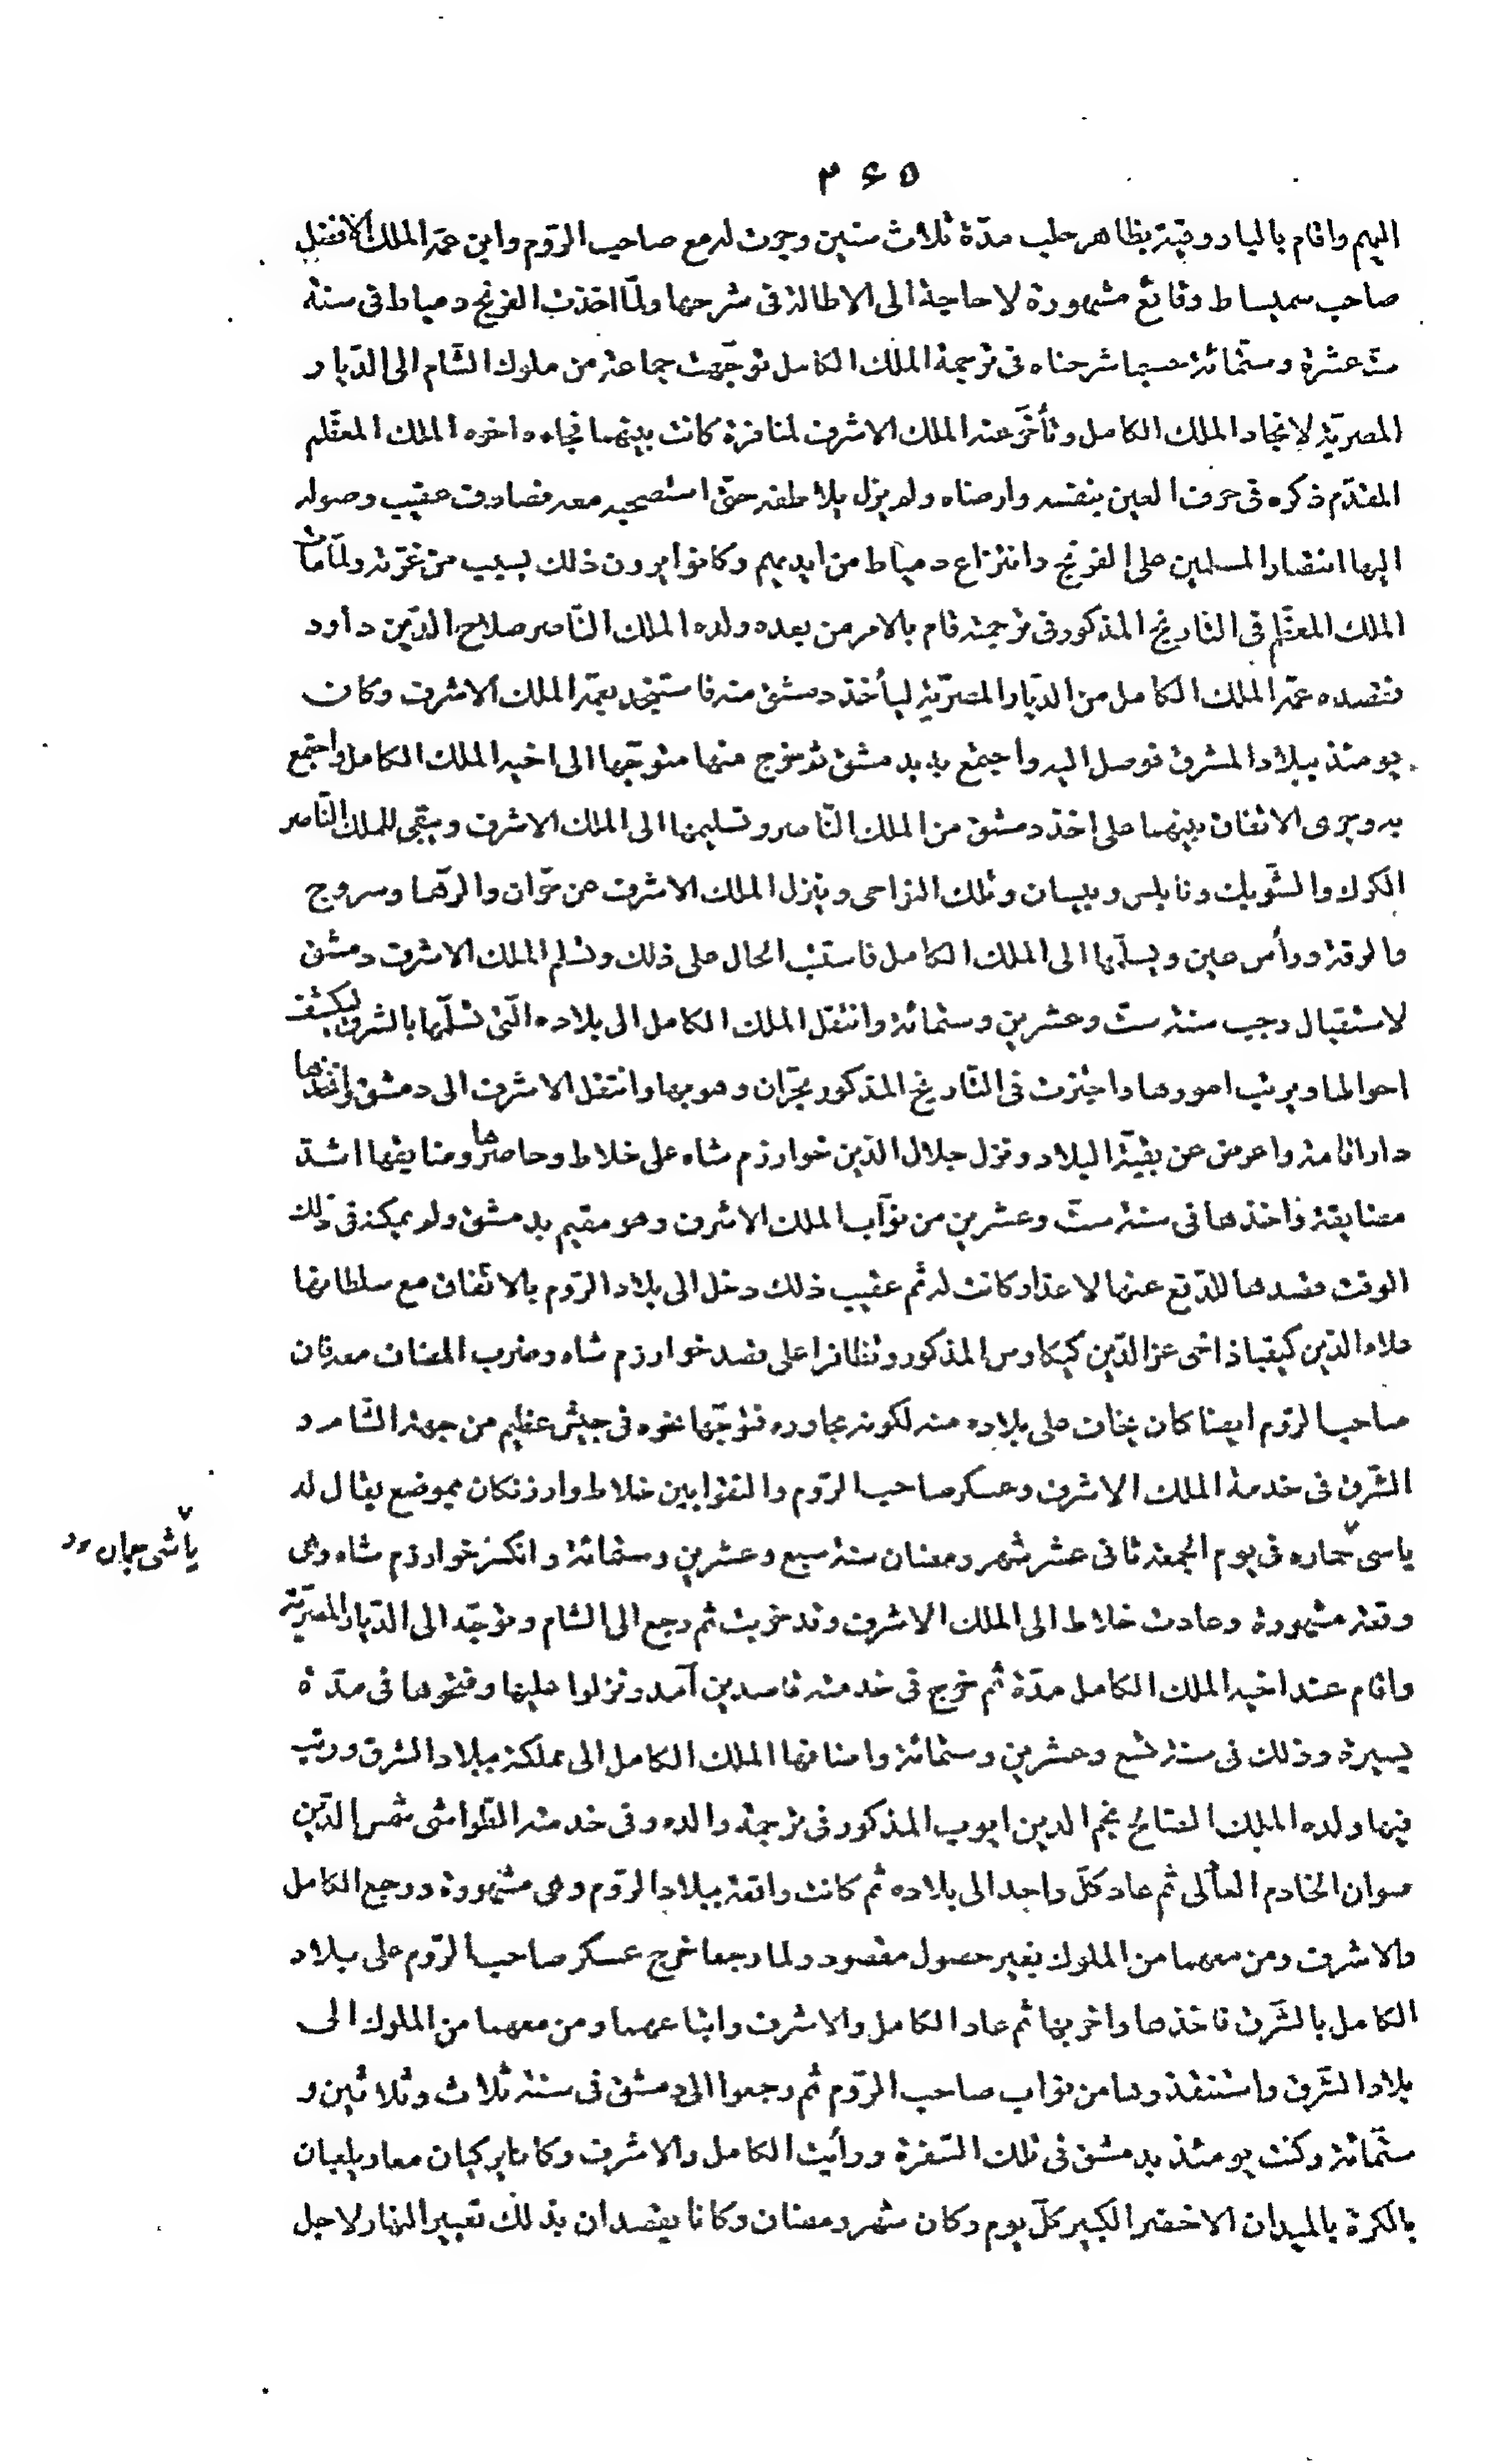 ٣٤٥
اليهم واقام بالياروقيّة بظاهر حلب مدّة ثلاث سنين وجرت له مع صاحب الرّوم وابن عمّه الملك الافضل
صاحب سميساط وقائع مشهورة لا حاجة الى الاطالة فى شرحها ولمّا اخذت الفرنج دمياط فى سنة
ستّ عشرة وستّمائة حسبما شرحناه فى ترجمة الملك الكامل توجّهت جماعة من ملوك الشّام الى الدّيار
المصريّة لانجاد الملك الكامل وتأخّر عنه الملك الاشرف لمنافرة كانت بينهما فجاءه اخوه الملك المعظّم
المقدّم ذكره فى حرف العين بنفسه وارضاه ولم يزل يلاطفه حتّى استصحبه معه فصادف عقيب وصوله
اليها انتصار المسلمين على الفرنج وانتزاع دمياط من ايديهم وكانوا يرون ذلك بسبب من غرّته ولمّا مات
الملك المعظّم فى التاريخ المذكور فى ترجمته قام بالامر من بعده ولده الملك النّاصر صلاح الدّين داود
فقصده عمّه الملك الكامل من الدّيار المصريّة ليأخذ دمشق منه فاستنجد بعمّه الملك الاشرف وكان
يومئذ ببلاد المشرق فوصل اليه واجتمع به بدمشق ثم خرج منها متوجّها الى اخيه الملك الكامل واجتمع
به وجرى الاتفاق بينهما على اخذ دمشق من الملك النّاصر وتسليمها الى الملك الاشرف ويبقى للملك النّاصر
الكرك والشّوبك ونابلس وبيسان وتلك النواحى وينزل الملك الاشرف عن حرّان والرّها وسروج
والرقة ورأس عين ويسلّمها الى الملك الكامل فاستتبّ الحال على ذلك وتسلّم الملك الاشرف دمشق
لاستقبال رجب سنة ستّ وعشرين وستمائة وانتقل الملك الكامل الى بلاده الّتى تسلّمها بالشرق ليكشف
احوالها ويرتب امورها واجتزت فى التّاريخ المذكور بحرّان وهو بها وانتقل الاشرف الى دمشق واتّخذها
دار اقامة واعرض عن بقيّة البلاد ونزل جلال الدّين خوارزم شاه على خلاط وحاصرها وضايقها اشدّ
مضايقة واخذها فى سنة ستّ وعشرين من نوّاب الملك الاشرف وهو مقيم بدمشق ولم يمكنه فى ذلك
الوقت قصدها للدّفع عنها لاعذار كانت له ثم عقيب ذلك دخل الى بلاد الرّوم بالاتّفاق مع سلطانها
علاء الدّين كيقباذ اخى عزّ الدّين كيكاوس المذكور وتظافرا على قصد خوارزم شاه وضرب المصاف معه فان
صاحب الرّوم ايضا كان يخاف على بلاده منه لكونه مجاوره فتوجّها نحوه فى جيش عظيم من جهة الشّام و
الشّرق فى خدمة الملك الاشرف وعسكر صاحب الرّوم والتقوا بين خلاط وارزنكان بموضع يقال له
ياسى حماره فى يوم الجمعة ثانى عشر شهر رمضان سنة سبع وعشرين وستّمائة وانكسر خوارزم شاه وهى
ياشى جمان
وقعة مشهورة وعادت خلاط الى الملك الاشرف وقد خربت ثم رجع الى الشام وتوجّه الى الدّيار المصريّة
واقام عند اخيه الملك الكامل مدّة ثم خرج فى خدمته قاصدين آمد ونزلوا عليها وفتحوها فى مدّة
يسيرة وذلك فى سنة تسع وعشرين وستمائة واضافها الملك الكامل الى مملكة ببلاد الشرق ورتب
فيها ولده الملك الصّالح نجم الدين ايوب المذكور فى ترجمة والده وفى خدمته الطّواشى شمس الدّين
صواب الخادم العادلى ثم عاد كلّ واحد الى بلاده ثم كانت واقعة ببلاد الرّوم وهى مشهورة ورجع الكامل
والاشرف ومن معهما من الملوك بغير حصول مقصود ولما رجعا خرج عسكر صاحب الرّوم على بلاد
الكامل بالشّرق فاخذها واخربها ثم عاد الكامل والاشرف واتباعهما ومن معهما من الملوك الى
بلاد الشّرق واستنقذوها من نوّاب صاحب الرّوم ثم رجعوا الى دمشق فى سنة ثلاث وثلاثين و
ستّمائة وكنت يومئذ بدمشق فى تلك السّفرة ورأيت الكامل والاشرف وكانا يركبان معا ويلعبان
بالكرة بالميدان الاخضر الكبير كلّ يوم وكان شهر رمضان وكانا يقصدان بذلك تعبير النهار لاجل